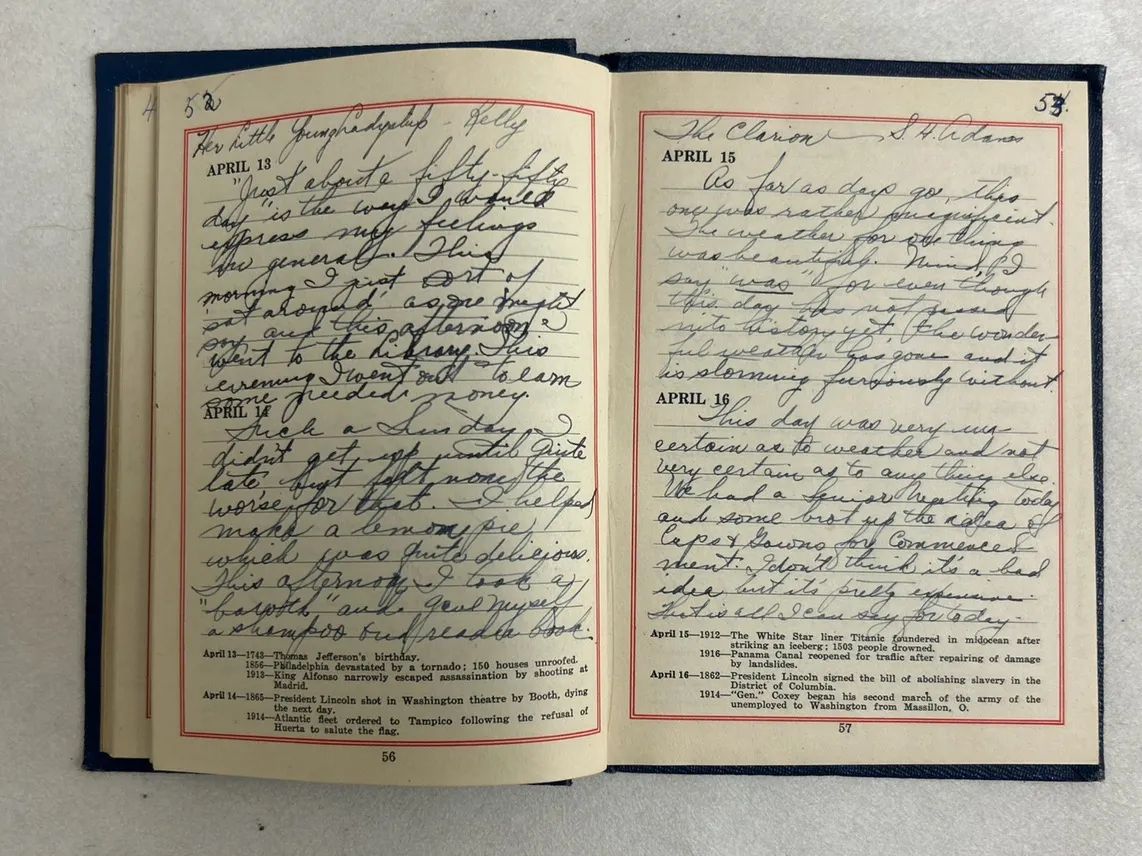 52
Her Little Young Ladyship - Kelly
APRIL 13
"Just about a fifty-fifty
day" is the way I would
express my feelings
in general. This
morning I just sort of
"sat around" as one might
say and this afternoon I
went to the Library. This
evening I went out to earn
some needed money.
APRIL 14
Such a Sunday. I
didn't get up until quite
late but felt none the
worse for that. I helped
make a lemon pie
which was quite delicious.
This afternoon I took a
"bawth" and gave myself
a shampoo and read a book.
April 13—1743—Thomas Jefferson's birthday.
1856—Philadelphia devastated by a tornado; 150 houses unroofed.
1913—King Alfonso narrowly escaped assassination by shooting at
Madrid.
April 14—1865—President Lincoln shot in Washington theatre by Booth, dying
the next day.
1914—Atlantic fleet ordered to Tampico following the refusal of
Huerta to salute the flag.
56
The Clarion S. H. Adams
APRIL 15
As far as days go, this
one was rather magnificent.
The weather for one thing
was beautiful. Mind, I
say "was" for even though
this day has not passed
into history yet, the wonder-
ful weather has gone and it
is storming furiously without.
APRIL 16
This day was very un-
certain as to weather and not
very certain as to any thing else.
We had a Senior Meeting today
and some brot up the idea of
Caps & Gowns for Commence-
ment. I don't think it's a bad
idea but it's pretty expensive.
That is all I can say for today.
April 15—1912—The White Star liner Titanic foundered in midocean after
striking an iceberg; 1503 people drowned.
1916—Panama Canal reopened for traffic after repairing of damage
by landslides.
April 16—1862—President Lincoln signed the bill of abolishing slavery in the
District of Columbia.
1914—"Gen." Coxey began his second march of the army of the
unemployed to Washington from Massillon, O.
57